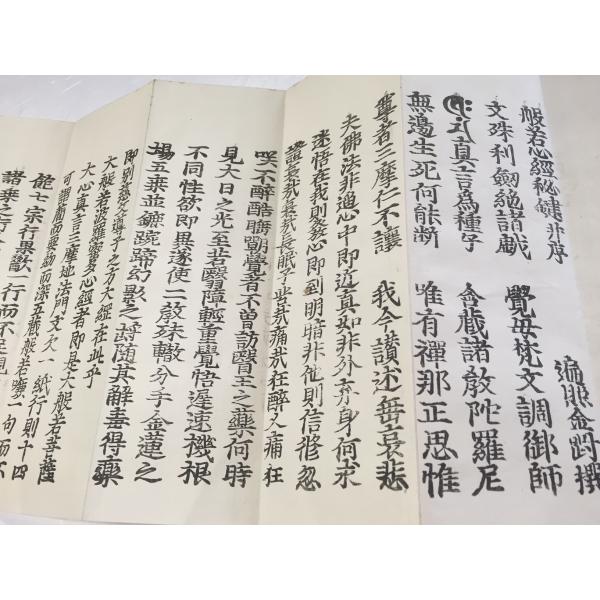 般若心經秘鍵并序
遍照金剛撰
文殊利劔絶諸戯 覺母梵文調御師
真言為種子 含藏諸教陀羅尼
無邊生死何能断 唯有禪那正思惟
尊者三摩仁不讓 我今讃述垂哀悲
夫佛法非遥心中即近真如非外弃身何求
迷悟在我則發心即到明暗非他則信修忽
證哀哉哀哉長眠子苦哉痛哉狂醉人痛狂
咲不醉酷睡嘲覺者不曽訪醫王之藥何時
見大日之光至若翳障輕重覺悟遅速機根
不同性欲即異遂使二教殊轍分手金蓮之
場五乗並鑣踠蹄幻影之埒随其解毒得藥
即別慈父導子之方大經在此乎
大般若波羅蜜多心經者即是大般若菩薩
大心真言三摩地法門文欠一紙行則十四
可謂簡而要約而深五藏般若嗛一句而不
飽七宗行果歠一行而不足
諸乗之行